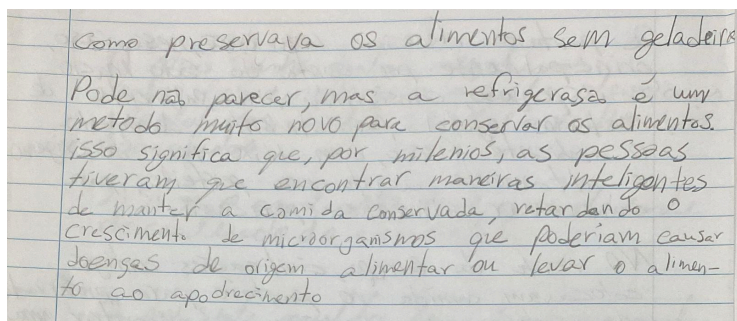 Como preservava os alimentos sem geladeira
Pode não parecer, mas a refrigerasão é um
metodo muito novo para conservar os alimentos.
isso significa que, por milenios, as pessoas
tiveram que encontrar maneiras inteligentes
de manter a comida conservada, retardando o
crescimento de microorganismos que poderiam causar
doenças de origem alimentar ou levar o alimen-
to ao apodrecimento